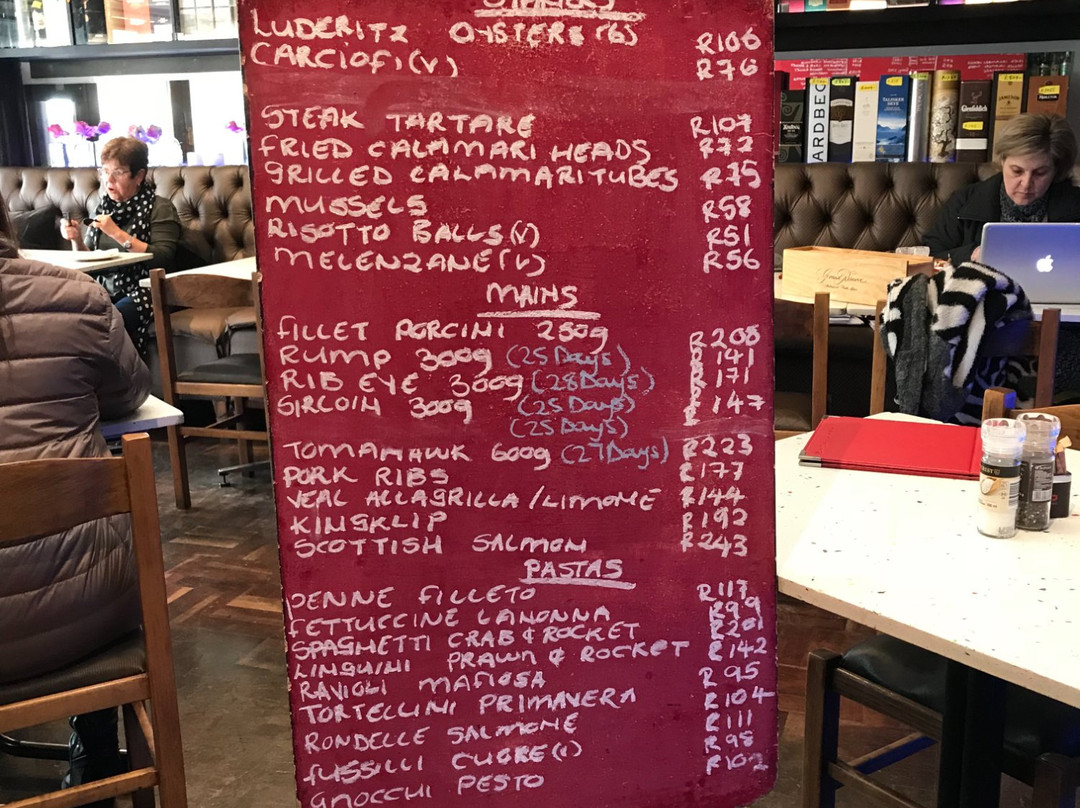 STARTERS
LUDERITZ OYSTERS (6) R106
CARCIOFI (V) R76
STEAK TARTARE R107
FRIED CALAMARI HEADS R72
GRILLED CALAMARI TUBES R75
MUSSELS R58
RISOTTO BALLS (V) R51
MELENZANE (V) R56
MAINS
FILLET PORCINI 250g R208
RUMP 300g (25 Days) R141
RIB EYE 300g (28 Days) R171
SIRLOIN 300g (25 Days) R147
(25 Days)
TOMAHAWK 600g (27 Days) R223
PORK RIBS R177
VEAL ALLAGRILLA / LIMONE R144
KINGKLIP R192
SCOTTISH SALMON R243
PASTAS
PENNE FILLETO R117
FETTUCCINE LANONNA R99
SPAGHETTI CRAB & ROCKET R201
LINGUINI PRAWN & ROCKET R142
RAVIOLI MAFIOSA R95
TORTELLINI PRIMAVERA R104
RONDELLE SALMONE R111
FUSSILLI CUORE (V) R98
GNOCCHI PESTO R102
ARDBEG
TALISKER
Glenfiddich
JAMESON